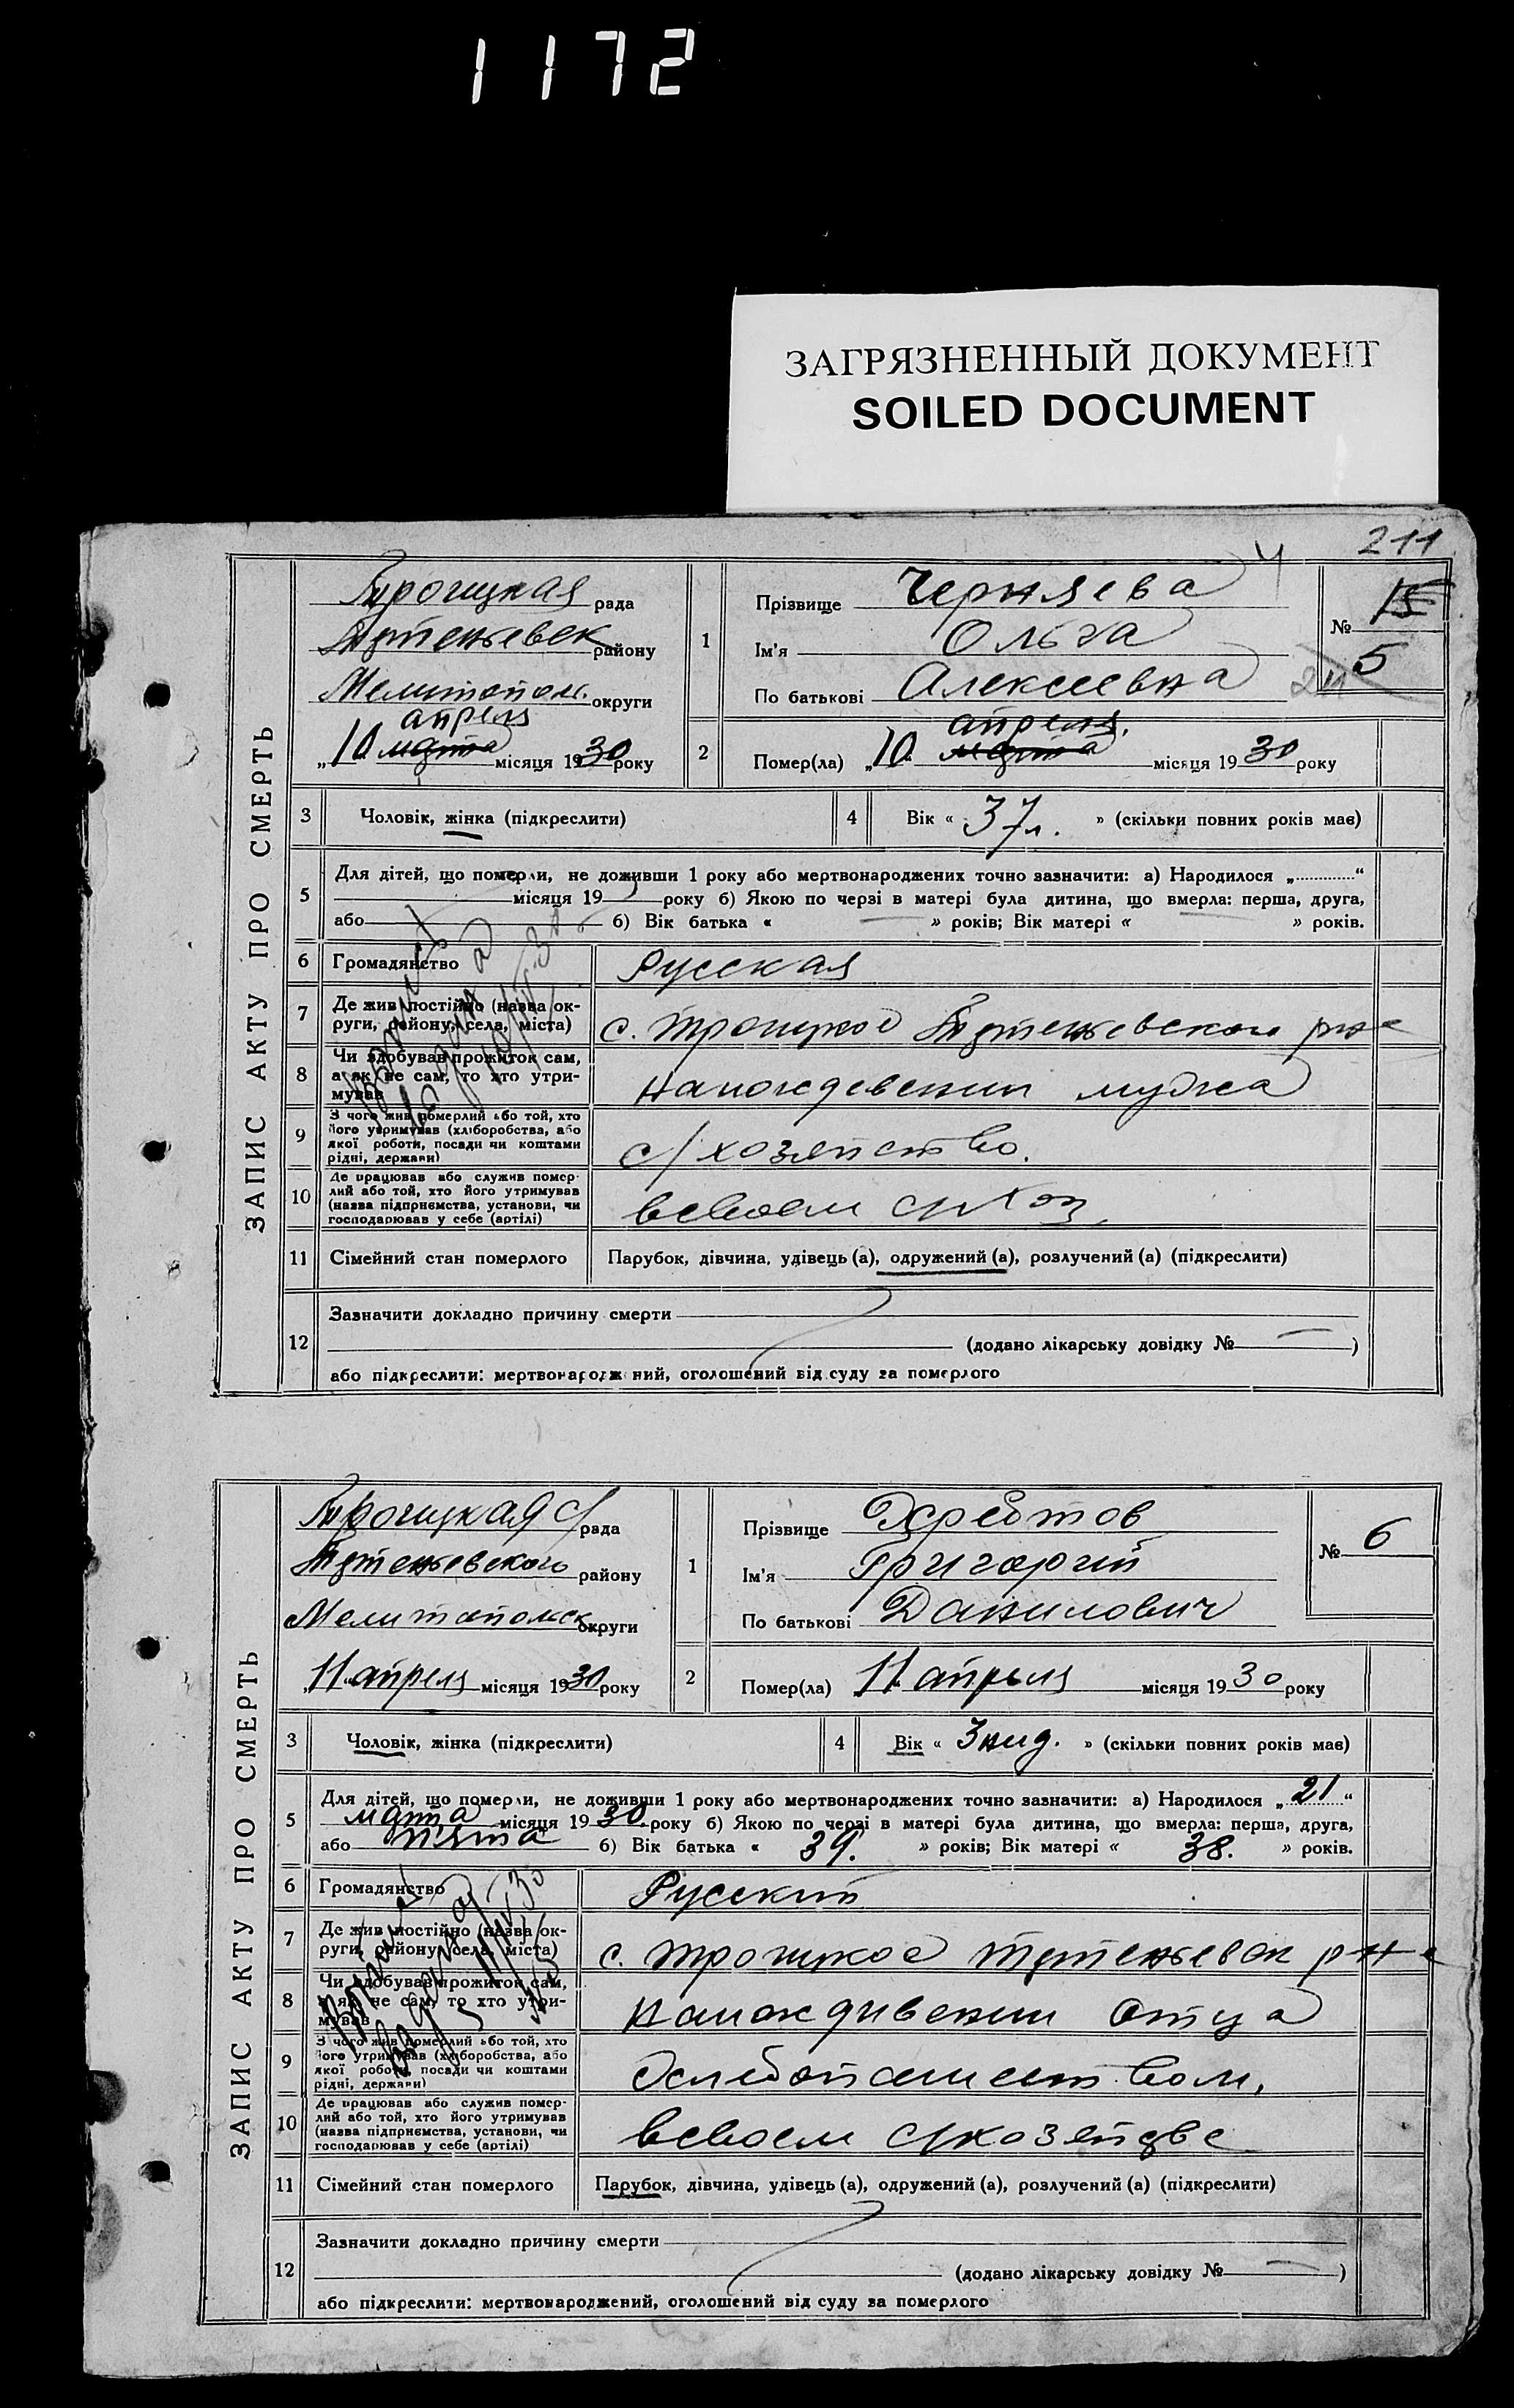 1172
ЗАГРЯЗНЕННЫЙ ДОКУМЕНТ
SOILED DOCUMENT
211
ЗАПИС АКТУ ПРО СМЕРТЬ
Троицкая рада
району
Мелитопол. округи
апреля
„10 марта місяця 1930 року
1
Прізвище Черняева
Ім'я Ольга
По батькові Алексеевна
№ 15
5
2
апреля.
Помер(ла) „10 марта місяця 1930 року
3 Чоловік, жінка (підкреслити)
4 Вік « 37 л. » (скільки повних років має)
5 Для дітей, що померли, не доживши 1 року або мертвонароджених точно зазначити: а) Народилося „ “
місяця 19 року б) Якою по черзі в матері була дитина, що вмерла: перша, друга,
або б) Вік батька « — » років; Вік матері « » років.
6 Громадянство Русская
7 Де жив постійно (назва ок-
руги, району, села, міста) с. Троицкое
8 Чи здобував прожиток сам,
а як не сам, то хто утри-
мував
на иождевении мужа
9 З чого жив померлий або той, хто
його утримував (хліборобства, або
якої роботи, посади чи коштами
рідні, держави)
с/хозяйство.
10 Де працював або служив помер-
лий або той, хто його утримував
(назва підприємства, установи, чи
господарював у себе (артілі)
всвоем с/хоз.
11 Сімейний стан померлого Парубок, дівчина, удівець (а), одружений (а), розлучений (а) (підкреслити)
12 Зазначити докладно причину смерти
(додано лікарську довідку № — )
або підкреслити: мертвонароджений, оголошений від суду за померлого
ЗАПИС АКТУ ПРО СМЕРТЬ
Троицкая с/рада
району
Мелитопольск округи
„11 апреля місяця 1930 року
1
Прізвище
Ім'я Григорий
По батькові Данилович
№ 6
2
Помер(ла) „11 апреля місяця 1930 року
3 Чоловік, жінка (підкреслити)
4 Вік « 3 нид. » (скільки повних років має)
5 Для дітей, що померли, не доживши 1 року або мертвонароджених точно зазначити: а) Народилося „21“
марта місяця 1930 року б) Якою по черзі в матері була дитина, що вмерла: перша, друга,
або пята б) Вік батька « 39. » років; Вік матері « 38. » років.
6 Громадянство Русский
7 Де жив постійно (назва ок-
руги, району, села, міста) с. Троицкое
8 Чи здобував прожиток сам,
а як не сам, то хто утри-
мував
на иождивении отца
9 З чого жив померлий або той, хто
його утримував (хліборобства, або
якої роботи, посади чи коштами
рідні, держави)
10 Де працював або служив помер-
лий або той, хто його утримував
(назва підприємства, установи, чи
господарював у себе (артілі)
всвоем с/хозяйстве
11 Сімейний стан померлого Парубок, дівчина, удівець (а), одружений (а), розлучений (а) (підкреслити)
12 Зазначити докладно причину смерти
(додано лікарську довідку № — )
або підкреслити: мертвонароджений, оголошений від суду за померлого